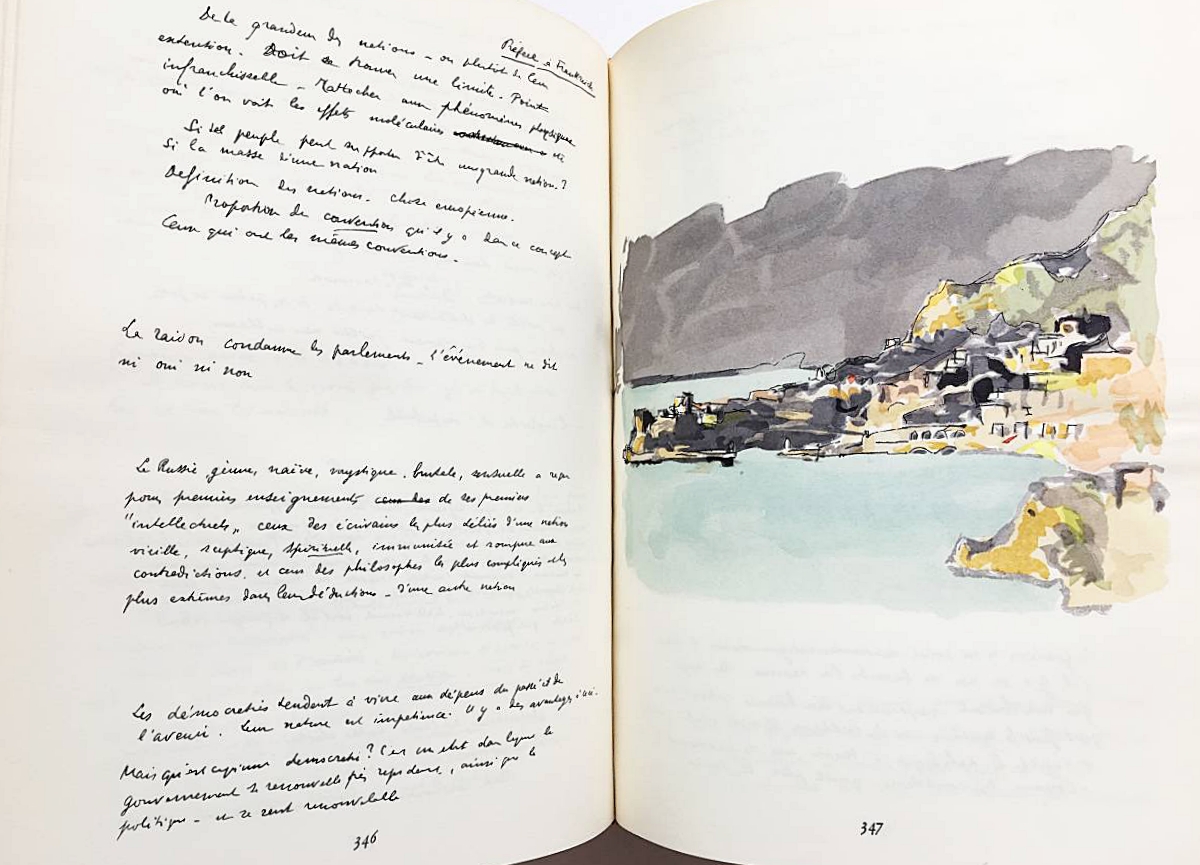 De la grandeur des nations - ou plutôt de leur
Préface à
extention. Doit se trouver une limite. Point
infranchissable - Rattacher aux phénomènes physiques
où l'on voit les effets moléculaires
Si tel peuple peut supporter d'être une grande nation?
Si la masse d'une nation
Definition des nations. chose européenne.
Proportion de conventions qu'il y a dans ce concept
Ceux qui ont les mêmes conventions.
La raison condamne les parlements - l'événement ne dit
ni oui ni non
La Russie, jeune, naïve, mystique, brutale, sensuelle a reçu
pour premiers enseignements de ses premiers
"intellectuels" ceux des écrivains les plus déliés d'une nation
vieille, sceptique, spirituelle, immunisée et rompue aux
contradictions, et ceux des philosophes les plus compliqués et les
plus extrêmes dans leurs déductions - d'une autre nation
Les démocraties tendent à vivre aux dépens du passé et de
l'avenir. Leur nature est impatience. Il y a des avantages à ceci.
Mais qu'est-ce qu'une democratie? C'est un etat dans lequel le
gouvernement se renouvelle très, ainsi que la
politique - et se sent renouvelable
346
347